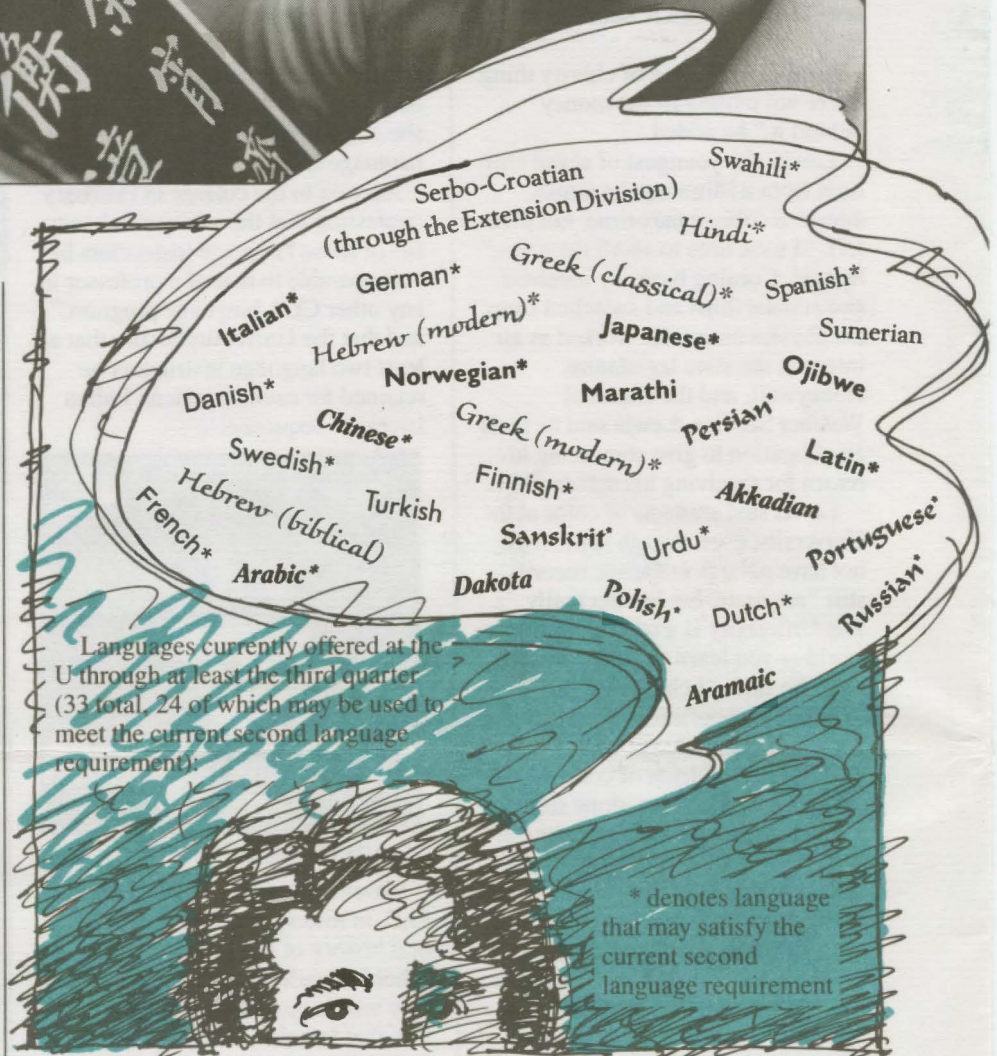 Swahili*
Serbo-Croatian
(through the Extension Division)
Hindi*
German*
Greek (classical)*
Spanish*
Italian*
Hebrew (modern)*
Japanese*
Sumerian
Norwegian*
Marathi
Ojibwe
Danish*
Chinese*
Greek (modern)*
Persian*
Swedish*
Latin*
Hebrew (biblical)
Turkish
Finnish*
Akkadian
French*
Sanskrit*
Urdu*
Portuguese*
Arabic*
Dakota
Polish*
Dutch*
Russian*
Aramaic
Languages currently offered at the
U through at least the third quarter
(33 total, 24 of which may be used to
meet the current second language
requirement):
* denotes language
that may satisfy the
current second
language requirement